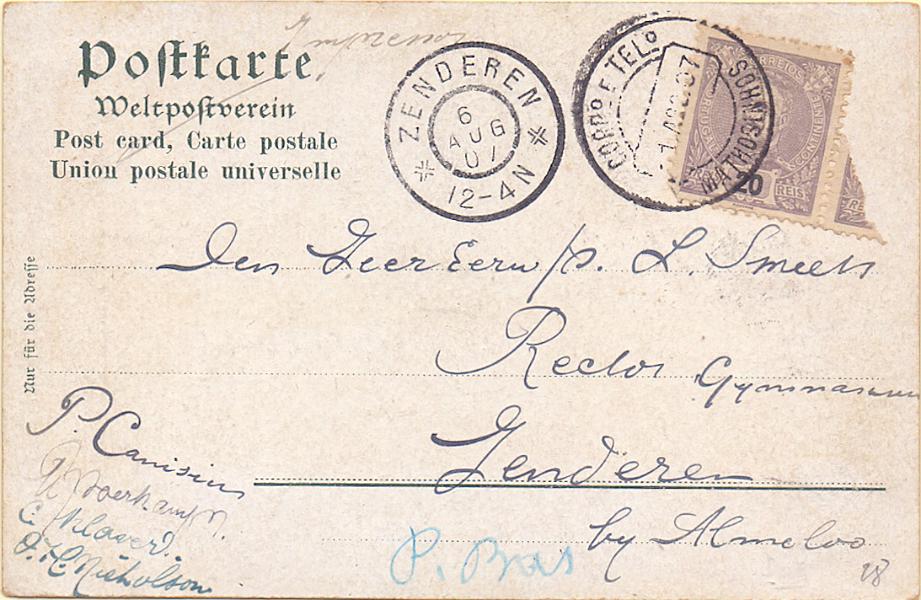 Postkarte
Impressos
Weltpostverein
Post card, Carte postale
Union postale universelle
ZENDEREN
6
AUG
07
12-4N
CORRº E TELº
MATTOSINHOS
1 AGO. 07
CORREIOS
20
REIS
RE
Nur für die Adresse
Den Zeer Eerw/p. L. Smeets
Rector Gymnasium
Zenderen
by Almeloo
P. Canisius
Klaver.
J. H. Nicholson
P. Bras
28